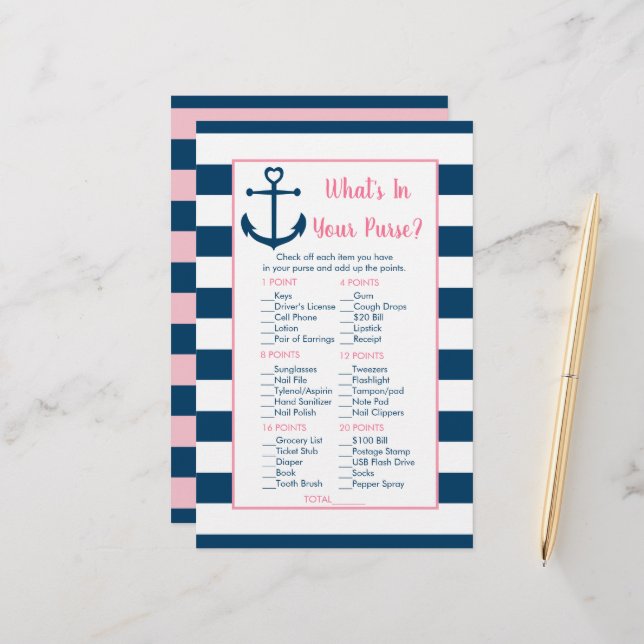 What's In
Your Purse?
Check off each item you have
in your purse and add up the points.
1 POINT
___Keys
___Driver's License
___Cell Phone
___Lotion
___Pair of Earrings
4 POINTS
___Gum
___Cough Drops
___$20 Bill
___Lipstick
___Receipt
8 POINTS
___Sunglasses
___Nail File
___Tylenol/Aspirin
___Hand Sanitizer
___Nail Polish
12 POINTS
___Tweezers
___Flashlight
___Tampon/pad
___Note Pad
___Nail Clippers
16 POINTS
___Grocery List
___Ticket Stub
___Diaper
___Book
___Tooth Brush
20 POINTS
___$100 Bill
___Postage Stamp
___USB Flash Drive
___Socks
___Pepper Spray
TOTAL______